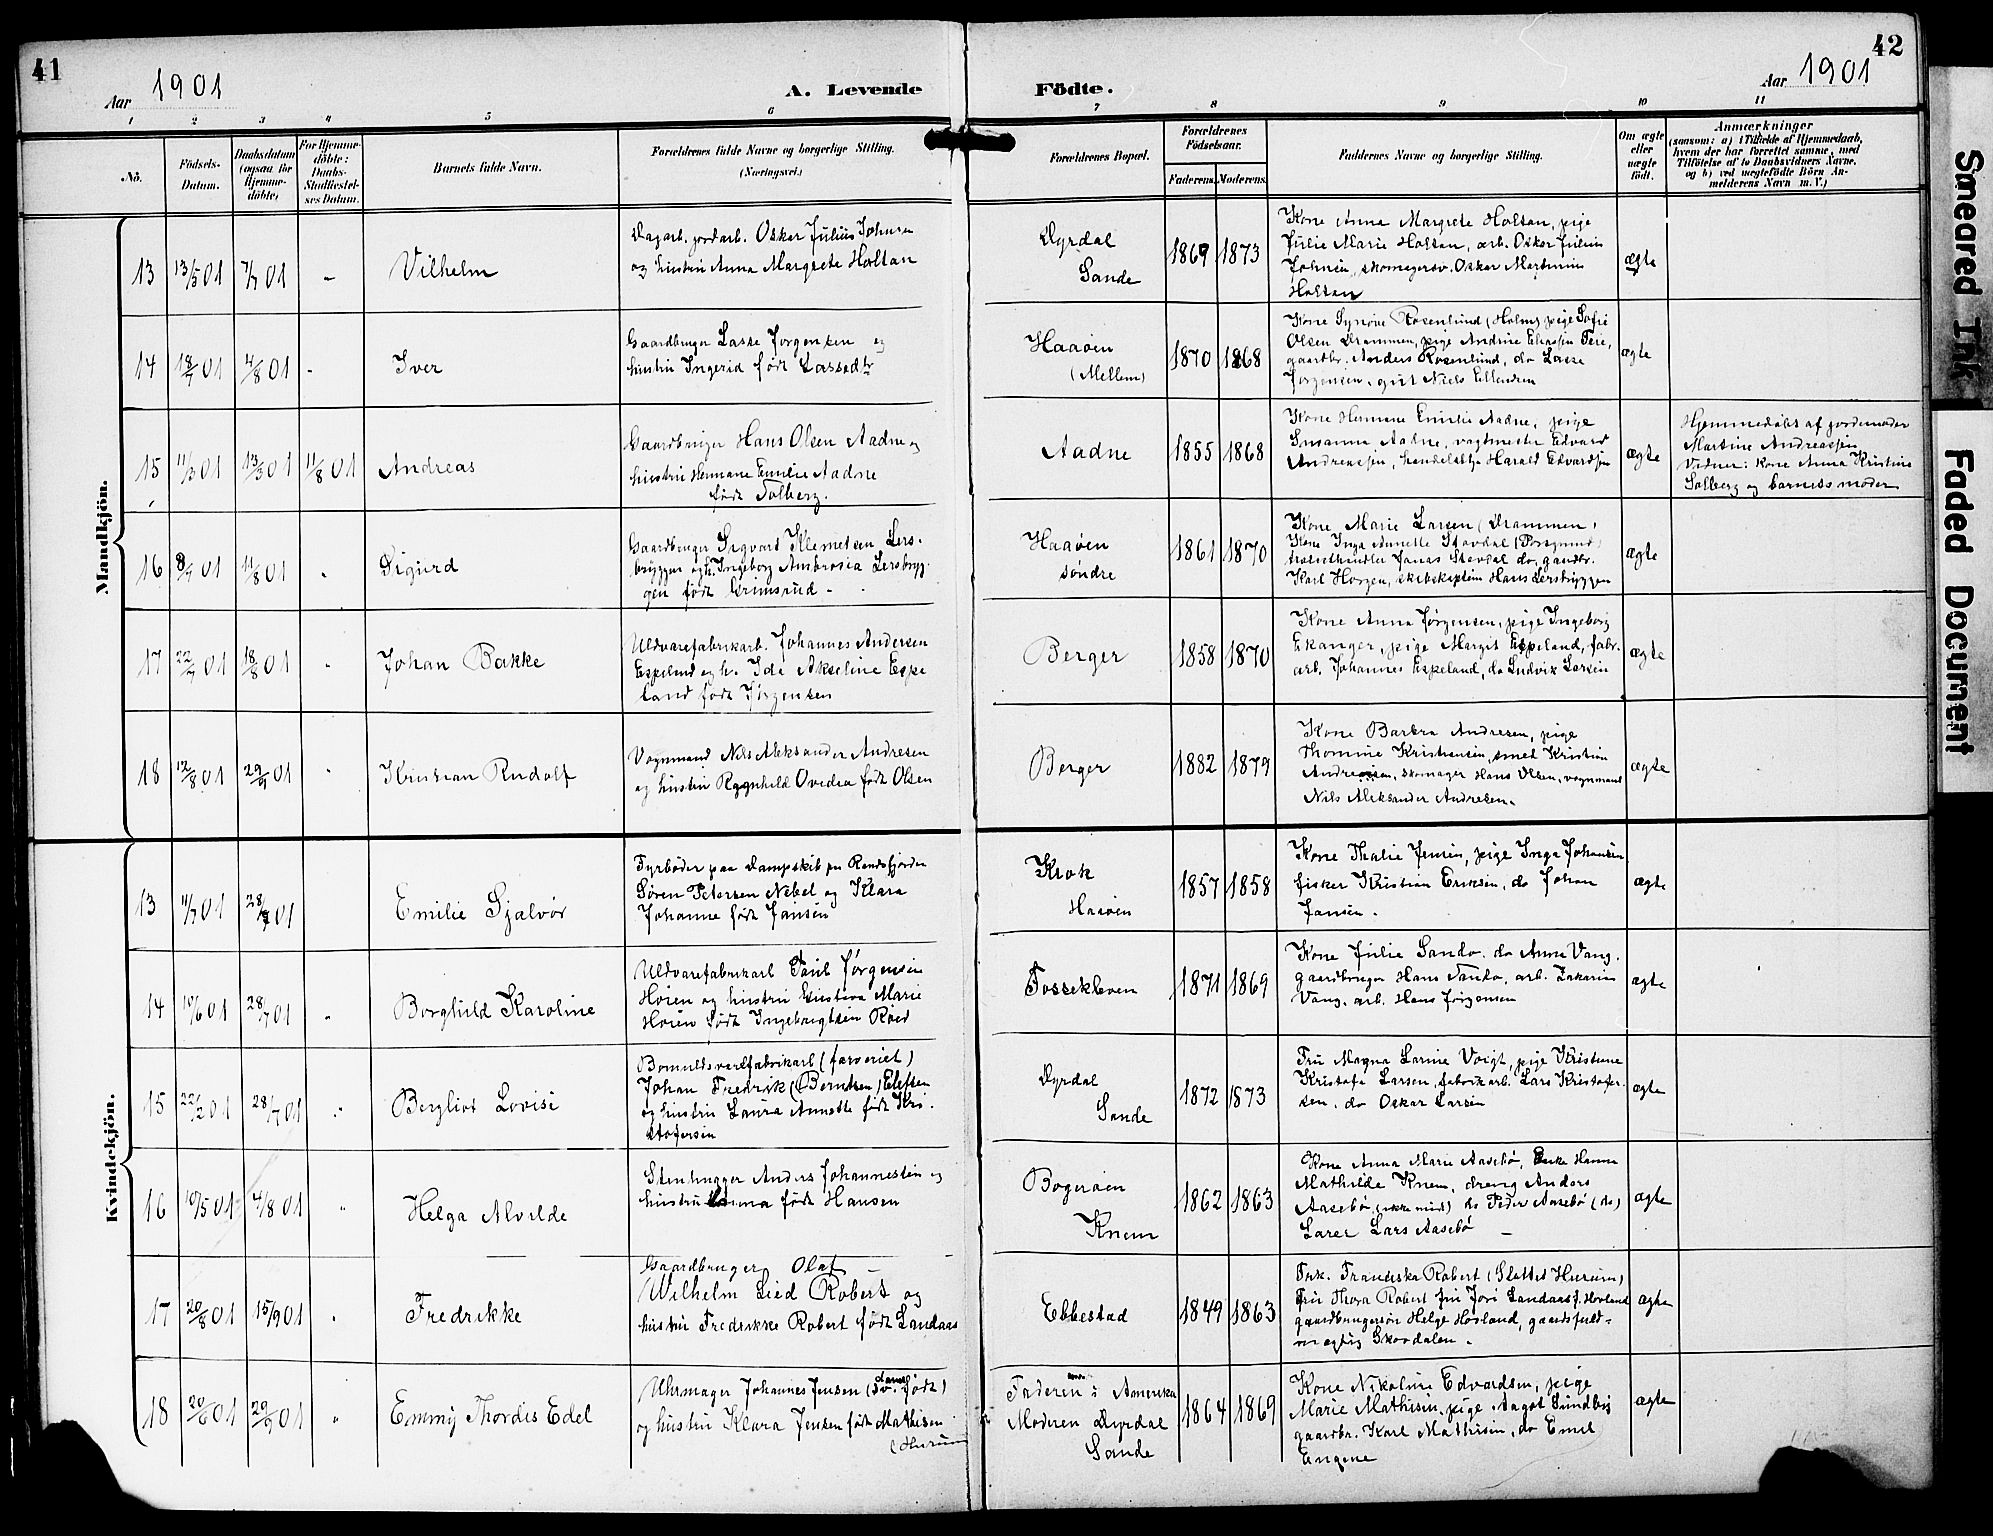 41
Aar 1901
A. Levende
Födte.
Aar 1901
42
1 2 3 4 5 6 7 8 9 10 11
No.
Födsels-
Datum.
Daabsdatum
(ogsaa for
Hjemme-
döbte)
For Hjemme-
döbte:
Daabs-
Stadfæstel-
ses Datum.
Barnets fulde Navn.
Forældrenes fulde Navne og borgerlige Stilling.
(Næringsvei.)
Forældrenes Bopæl.
Forældrenes
Födselsaar.
Faderens. Moderens.
Faddernes Navne og borgerlige Stilling.
Om ægte
eller
uægte
født.
Anmærkninger
(saasom: a) i Tilfælde af Hjemmedaab,
hvem der har forrettet samme, med
Tilföielse af to Daabsvidners Navne,
og b) ved uægtefödte Börn An-
melderens Navn m. V.)
Mandkjön.
13 13/5 01 7/7 01 - Vilhelm
Dagarb. jordarb. Oskar Julius Johnsen
og hustru Anna Margrete Holtan
Dyrdal
Sande
1869 1873
Kone Anna Margrete Holtan, pige
Julie Marie Holtan, arb. Oskar Julius
Johnsen, skomagersv. Oskar Martinius
Holtan
ægte
14 18/7 01 4/8 01 - Iver
Gaardbruger Lasse Jørgensen og
hustru Ingerid født Lassedtr
Haaøen
(Mellem)
1870 1868
Kone Synøve Rosenlund (Holm) pige Sofie
Olsen Drammen, pige Andrine Eliassen Teie,
gaardbr. Anders Rosenlund, do Lasse
Jørgensen, gut Niels Ellendsen
ægte
15 11/3 01 13/3 01 11/8 01 Andreas
Gaardbruger Hans Olsen Aadne og
hustru Hermane Emilie Aadne
født Solberg.
Aadne
1855 1868
Kone Hermane Emilie Aadne, pige
Susanna Aadne, vagtmester Edvard
Andreassen, handelsbtj. Harald Edvardsen
ægte
Hjemmedøbt af gjordemoder
Martine Andreassen
Vidner: kone Anna Kristine
Solberg og barnets moder
16 8/7 01 11/8 01 " Sigurd
Gaardbruger Sigvard Klemetsen Lers-
bryggen og h. Ingeborg Ambrosia Lersbryg-
gen født Grimsrud -
Haaøen
søndre
1861 1870
Kone Marie Larsen (Drammen)
Kone Inga Annette Stavdal
Jonas Stavdal do, gaardbr.
Karl Horgen, skibskaptein Hans Lersbryggen
ægte
17 22/7 01 18/8 01 " Johan Bakke
Uldvarefabrikarb. Johannes Andersen
Espelund og h. Ida Akseline Espe
land født Jørgensen
Berger
1858 1870
Kone Anna Jørgensen, pige Ingeborg
Ekanger, pige Margit Espeland, fabr.
arb. Johannes Espeland, do Ludvik Larsen
ægte
18 12/8 01 29/9 01 " Kristian Rudolf
Vognmand Nils Aleksander Andresen
og hustru Ragnhild Ovedea født Olsen
Berger
1882 1879
Kone Barbra Andresen, pige
Thomine Kristiansen, smed Kristian
Andreasen, skomager Hans Olsen, vognmand
Nils Aleksander Andresen.
ægte
Kvindekjön.
13 11/7 01 28/7 01 Emilie Sjalvør
Fyrbøder paa Dampskib paa Randsfjorden
Søren Petersen Nebel og Klara
Johanne født Jansen
Krok
Haaøen
1857 1858
Kone Thalie Jensen, pige Inga Johansen
fisker Kristian Eriksen, do Johan
Jansen.
ægte
14 10/6 01 28/7 01 " Borghild Karoline
Uldvarefabrikarb Paul Jørgensen
Hoien og hustru Gustava Marie
Hoien født Ingebregtsen Røed
Fossekleven
1871 1869
Kone Julie Sando. do Anne Vang.
gaardbruger Hans Sando, arb. Zakarias
Vang. arb. Hans Jørgensen
ægte
15 22/2 01 28/7 01 " Bergliot Lovise
Bomuldsvarefabrikarb (farveriet)
Johan Fredrik (Berntsen) Elefsen
og hustru Laura Annette født Kri-
stofersen
Dyrdal
Sande
1872 1873
Fru Magna Larine Voigt, pige Kristine
Kristofa Larsen, fabrikarb. Lars Kristofer-
sen, do Oskar Larsen
ægte
16 10/5 01 4/8 01 " Helga Alvilde
Stenhugger Anders Johannessen og
hustru Emma født Hansen
Bogeraen
Knem
1862 1863
Kone Anna Marie Aasebø, Enke Hanna
Mathilde Knem, dreng Anders
Aasebø (ikke mød) do Peder Aasebø (do)
Lærer Lars Aasebø -
ægte
17 20/8 01 15/9 01 " Fredrikke
Gaardbruger Olaf
Wilhelm Lied Robert og
hustru Fredrikke Robert født Landaas
Ebbestad
1849 1863
Frk. Franciska Robert (Slottet Hurum)
Fru Thora Robert fru Jovi Landaas f. Hovland
gaardbrugersøn Helge Hovland, gaardsfuld-
mægtig Skovdalen.
ægte
18 20/6 01 29/9 01 " Emmy Thordis Edel
Uhrmager Johannes Jensen (født)
og hustru Klara Jensen født Mathisen
(Hurum
Faderen i Amerika
Moderen Dyrdal
Sande
1864 1869
Kone Nikoline Edvardsen, pige
Marie Mathisen, pige Dagot Sundby
gaardbr. Karl Mathisen, do Emil
Engene
ægte
Smeared Ink
Faded Document